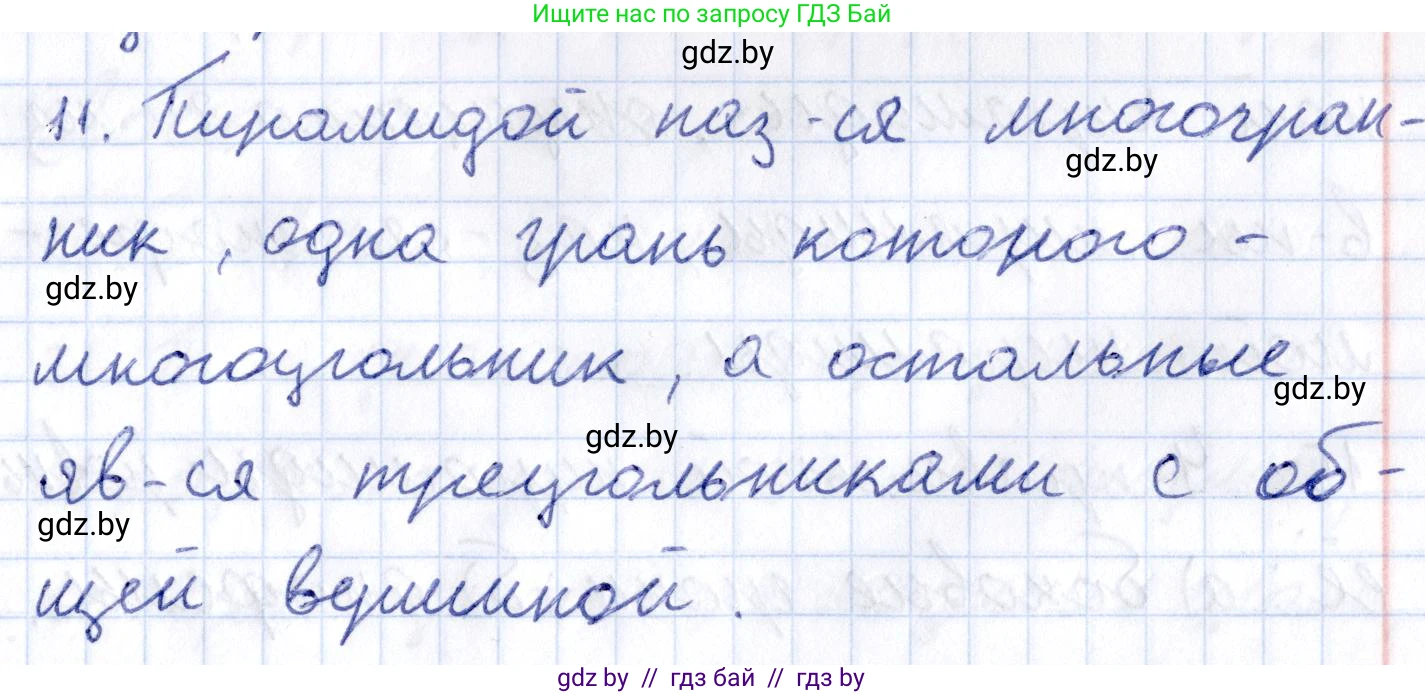 Ищите нас по запросу ГДЗ Бай
gdz.by
11. Пирамидой наз-ся многогран-
gdz.by
ник, одна грань которого -
gdz.by
многоугольник, а остальные
gdz.by
gdz.by
яв-ся треугольниками с об-
gdz.by
щей вершиной.
gdz.by // гдз бай // гдз by